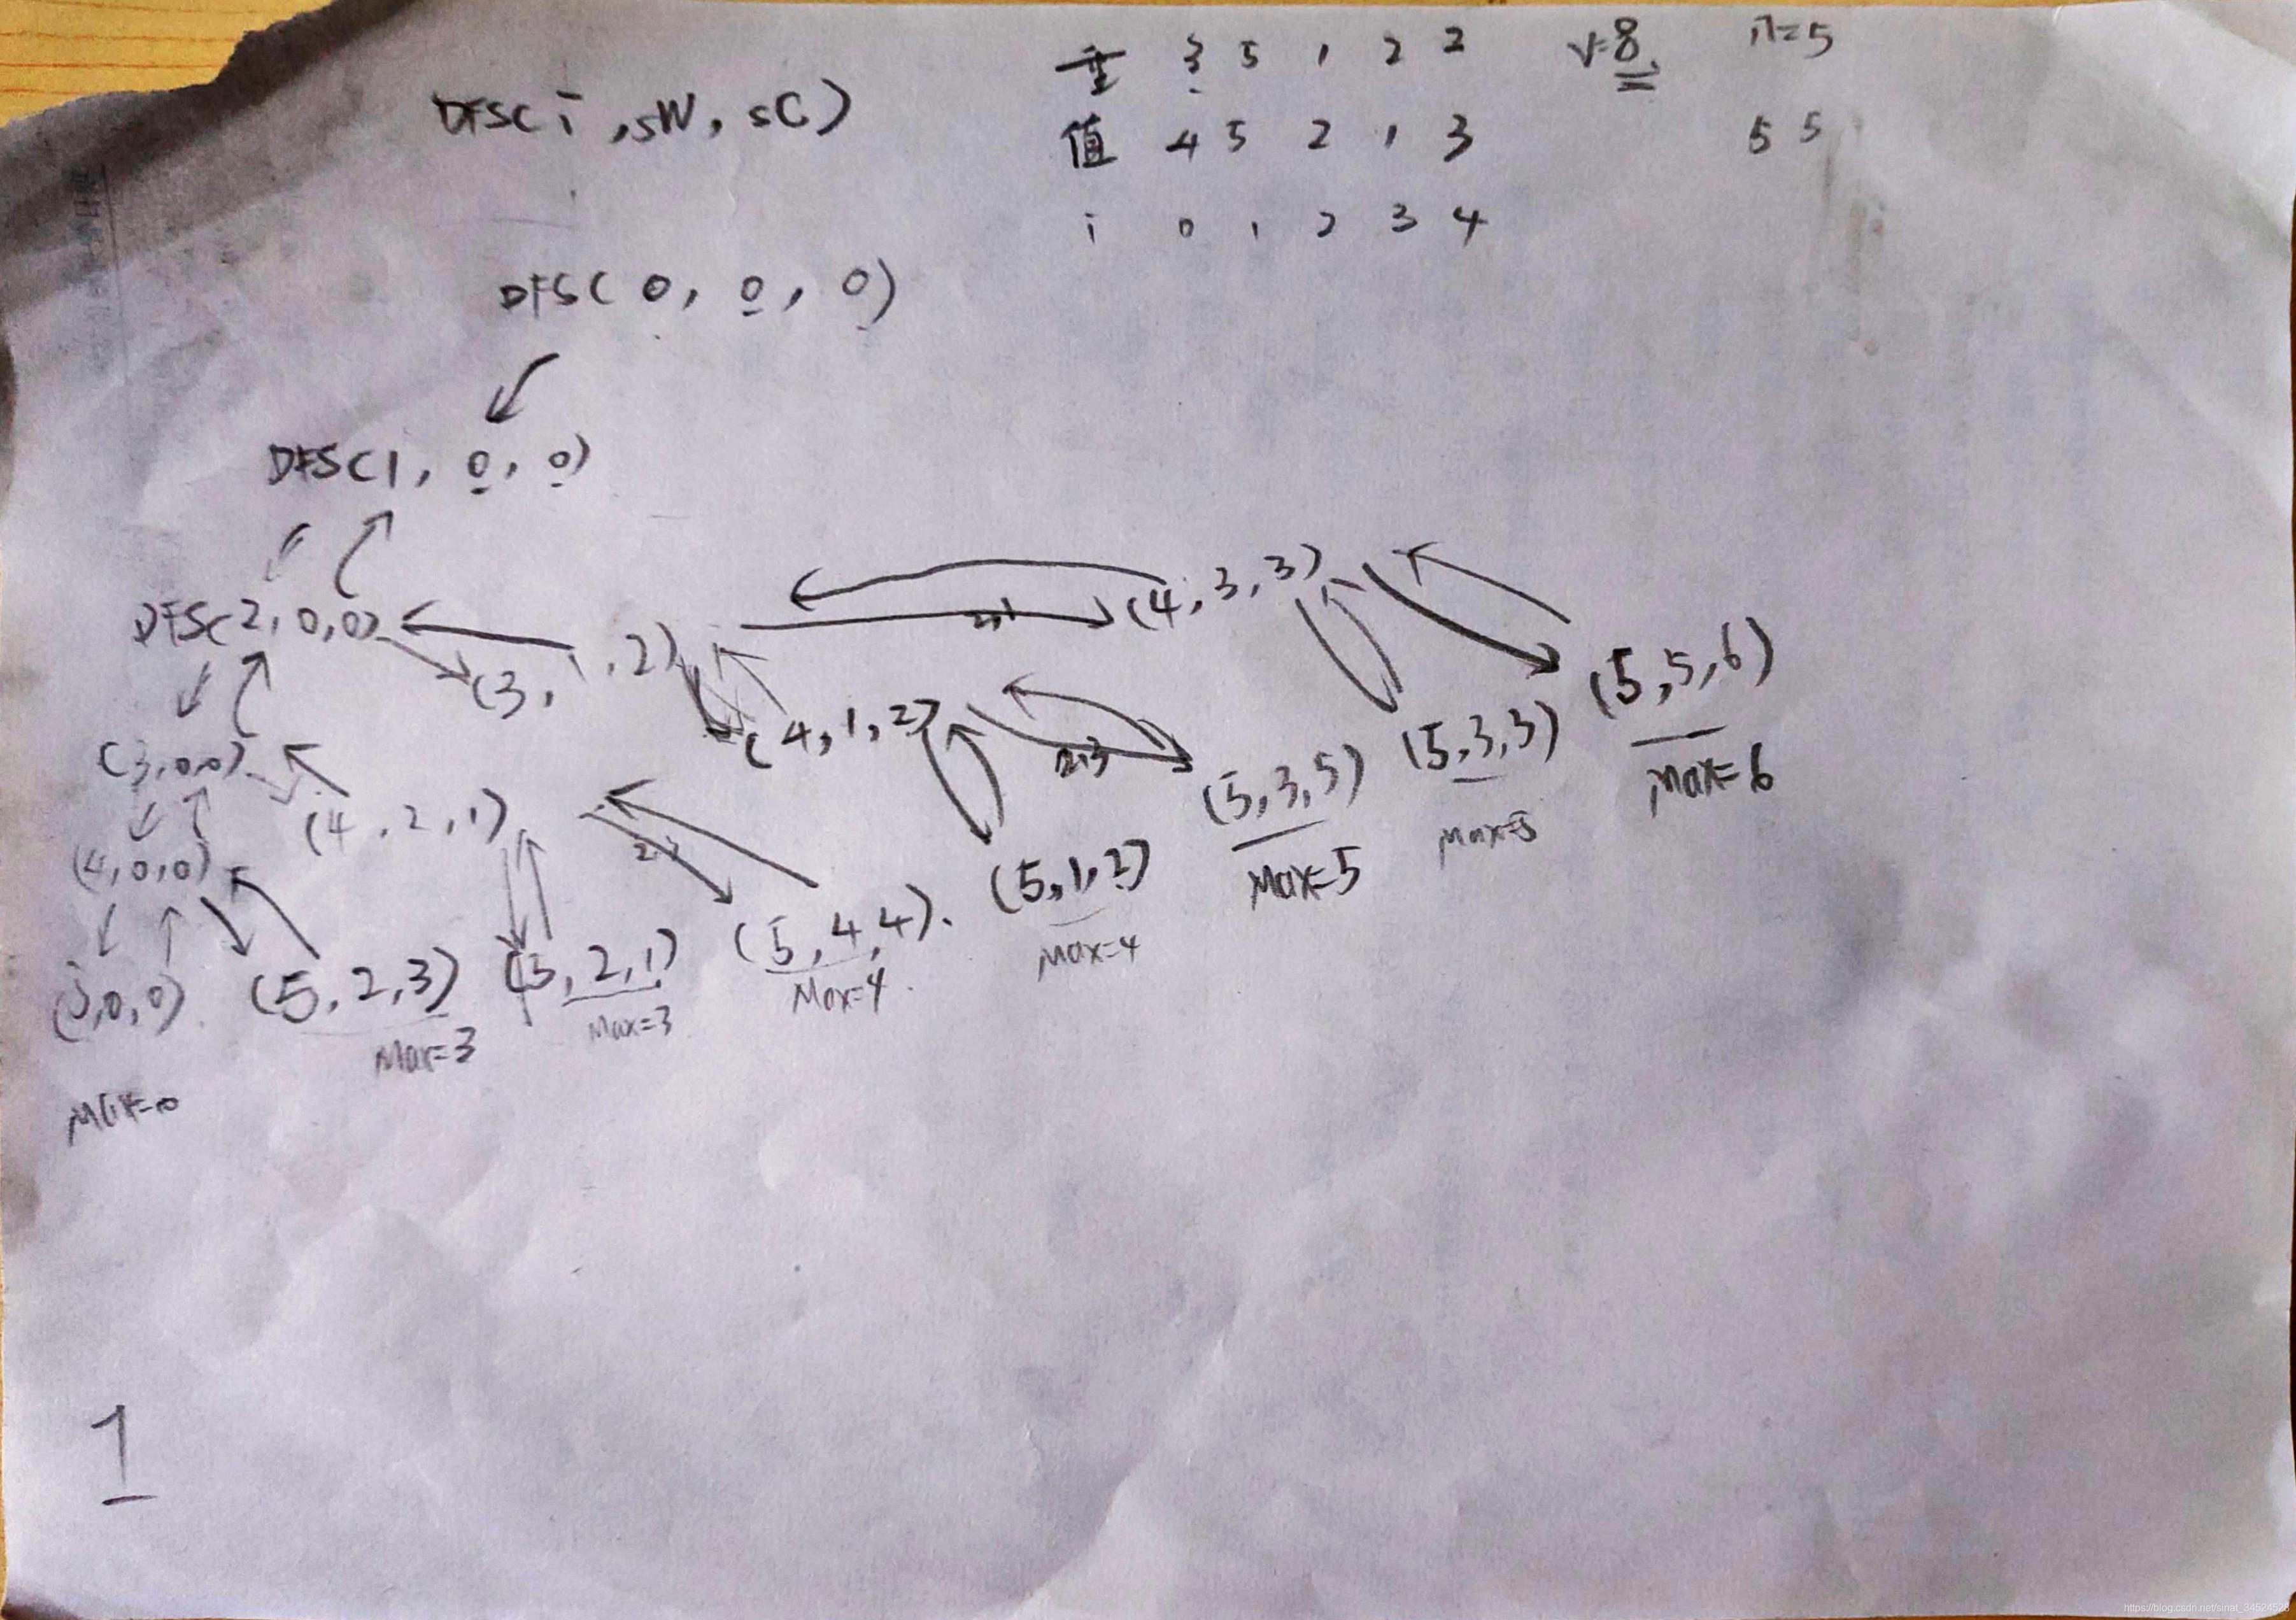 重 3 5 1 2 2 V=8 n=5
DFS(i, sW, sC)
值 4 5 2 1 3 5 5
i 0 1 2 3 4
DFS(0, 0, 0)
DFS(1, 0, 0)
DFS(2, 0, 0)
(3, 1, 2)
2,1
(4, 3, 3)
(3,0,0)
(4, 2, 1)
(4, 1, 2)
2,3
(5, 3, 5)
(5,3,3)
(5,5,6)
Max=5
Max=5
Max=6
(4,0,0)
(5,0,0)
(5,2,3)
(5,2,1)
(5,4,4).
(5,1,2)
Max=0
Max=3
Max=3
Max=4
Max=4
1
https://blog.csdn.net/sinat_34524528